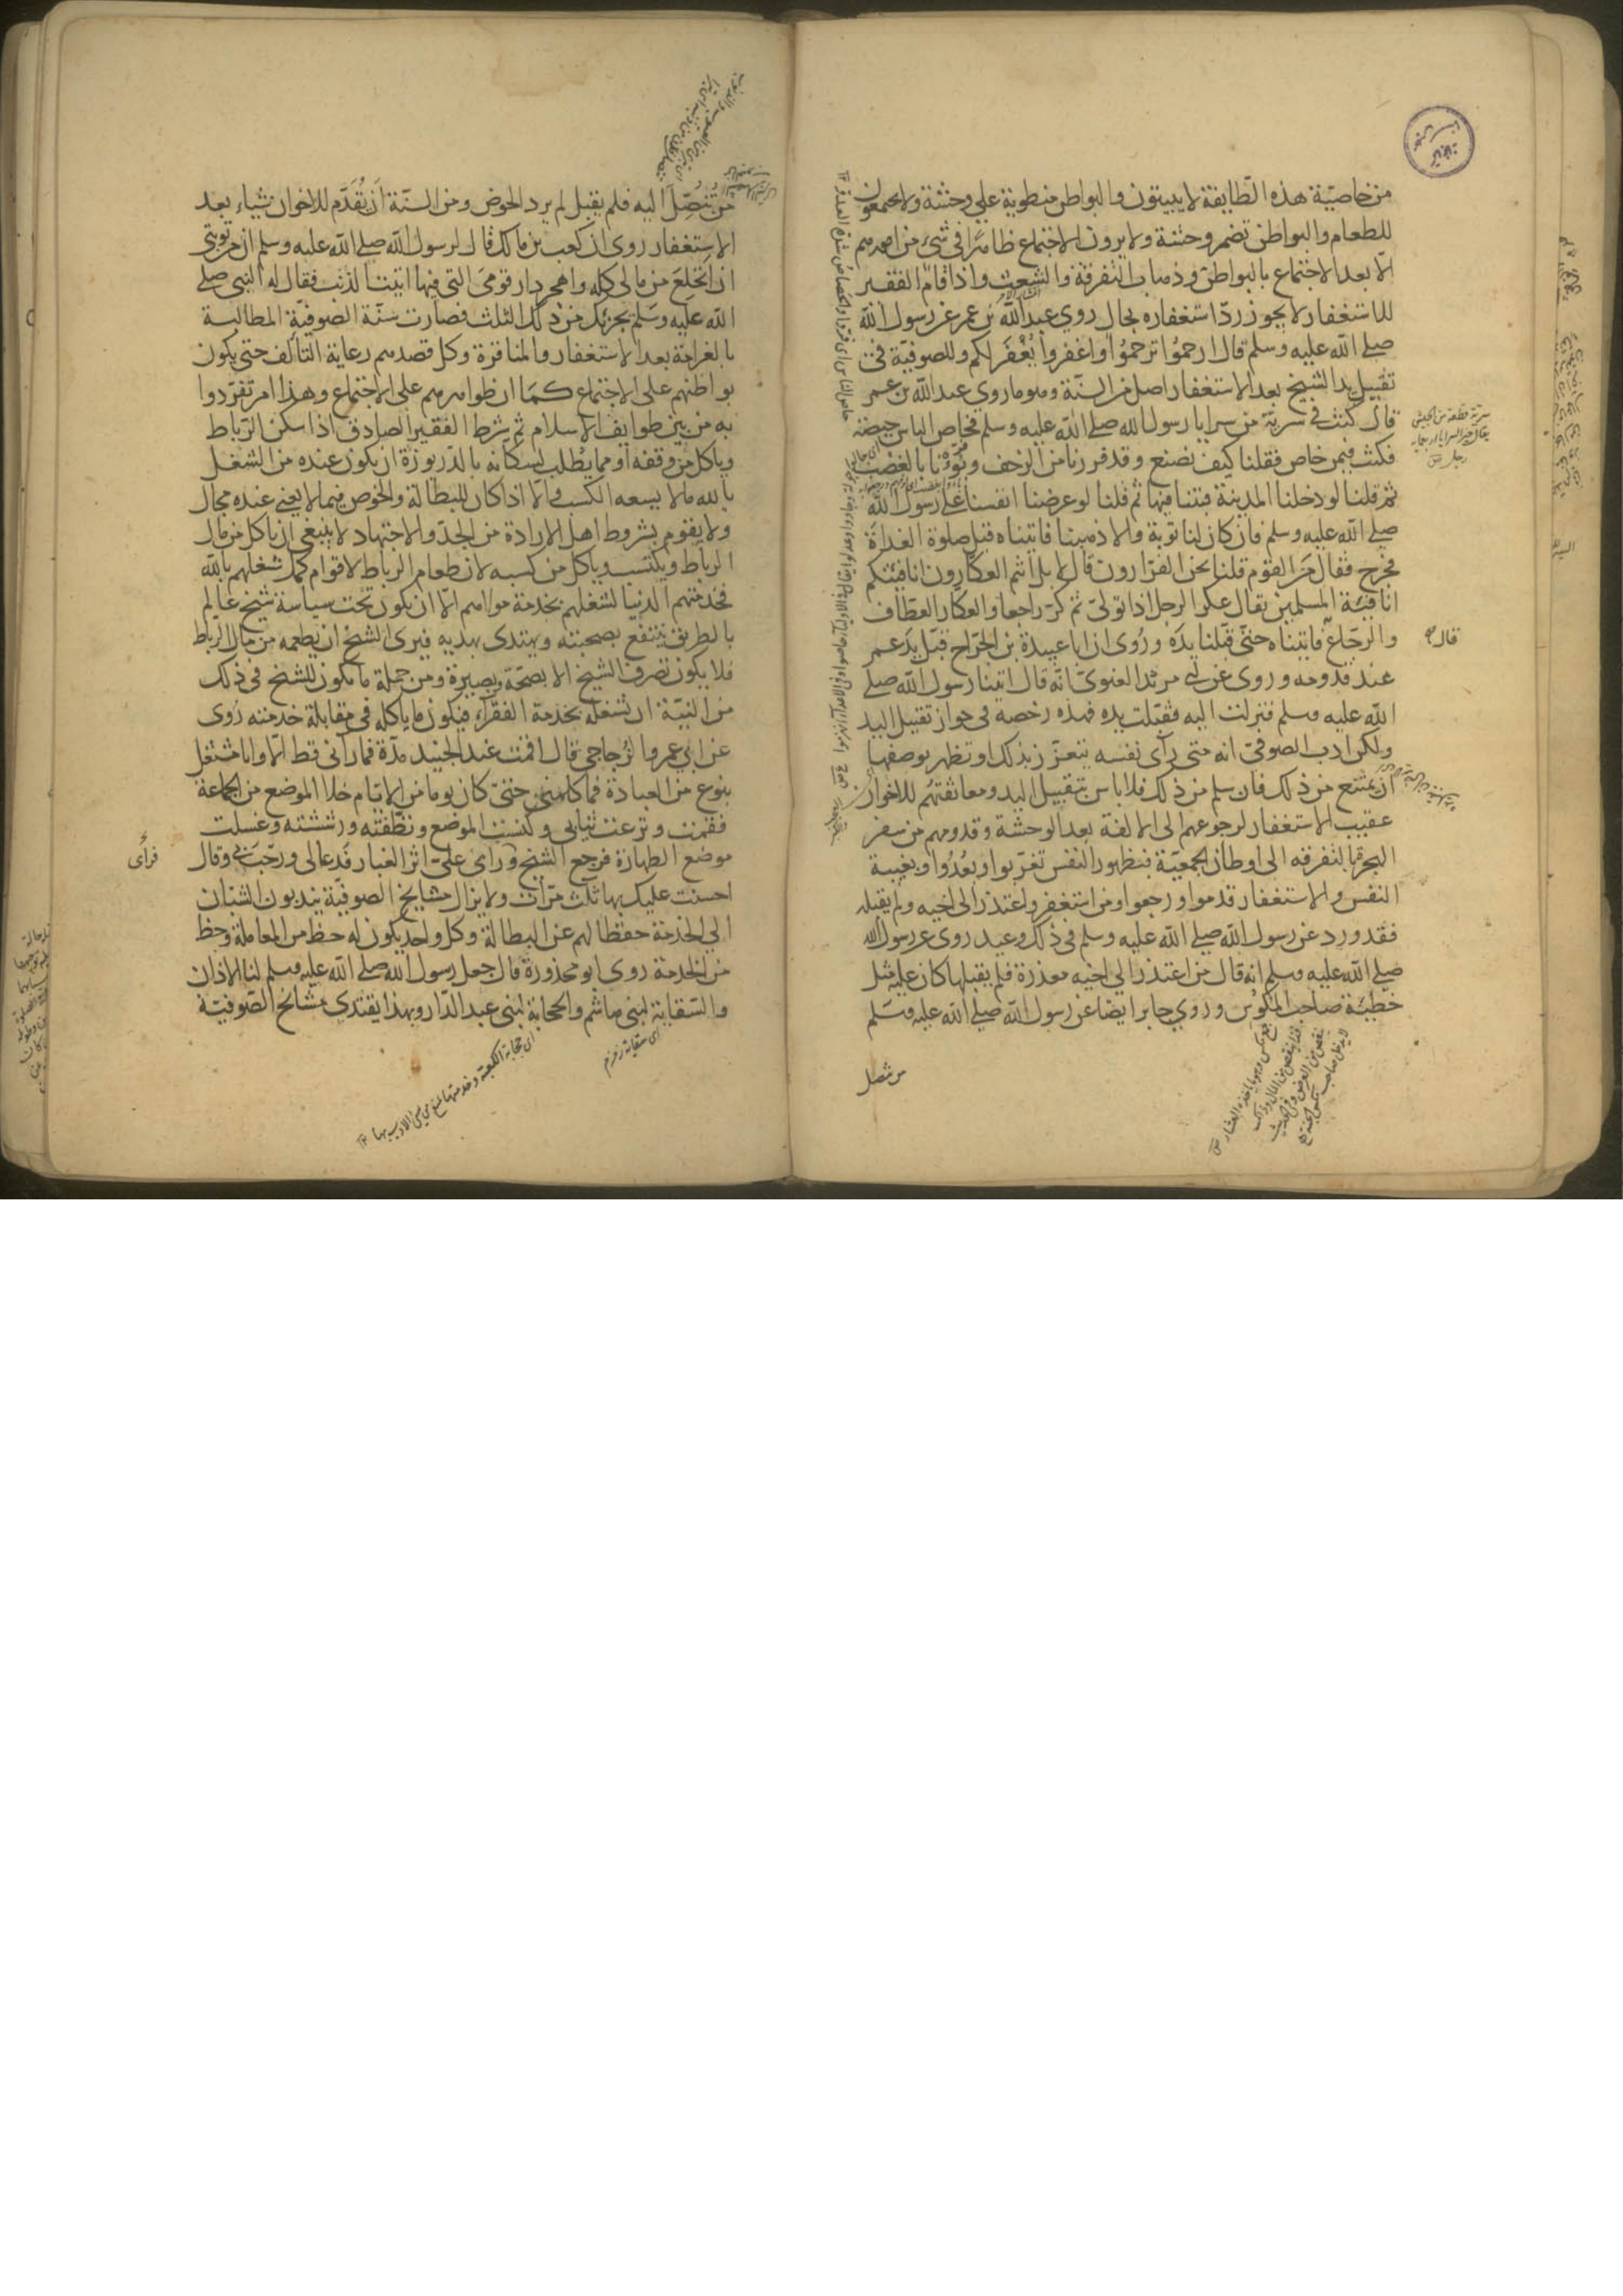 من خاصية هذه الطايفة لا يبيتون والبواطن منطوية علي وحشة ولا يجتمعون
للطعام والبواطن تضمر وحشة ولا يرون الاجتماع ظاهرا في شئ من امورهم
الا بعد الاجتماع بالبواطن وذهاب التفرقة والشعث واذا قام الفقير
للاستغفار لا يجوز رد استغفاره بحال روي عبد الله بن عمر عن رسول الله
صلے الله عليه وسلم قال ارحموا ترحموا واغفروا يغفر لكم وللصوفية في
تقبيل يد الشيخ بعد الاستغفار اصل من السنة وهو ما روي عبد الله بن عمر
قال كنت في سرية من سرايا رسول الله صلے الله عليه وسلم فحاص الناس حيصة
فكنت فيمن حاص فقلنا كيف نصنع وقد فررنا من الزحف وبؤنا بالغضب
ثم قلنا لو دخلنا المدينة فبتنا فيها ثم قلنا لو عرضنا انفسنا علے رسول الله
صلے الله عليه وسلم فان كان لنا توبة والا ذهبنا فاتيناه قبل صلوة الغداة
فخرج فقال من القوم قلنا نحن الفرارون قال لا بل انتم العكارون انا فئتكم
انا فئة المسلمين يقال عكر الرجل اذا تولى ثم كر راجعا والعكار العطاف
والرجاع فاتيناه حتى قبلنا يده وروى ان ابا عبيدة بن الجراح قبل يد عمر
عند قدومه وروى عن ابي مرثد الغنوى انه قال اتينا رسول الله صلے
الله عليه وسلم فنزلت اليه فقبلت يده فهذه رخصة في جواز تقبيل اليد
ولكن ادب الصوفي انه متى رآى نفسه تتعزز بذلك او تظهر بوصفها
ان يمتنع من ذلك فان سلم من ذلك فلا باس بتقبيل اليد ومعانقتهم للاخوان
عقيب الاستغفار لرجوعهم الى الالفة بعد الوحشة وقدومهم من سفر
الهجرة بالتفرقة الى اوطان الجمعية فبظهور النفس تغربوا وبعدوا وبغيبة
النفس والاستغفار قدموا ورجعوا ومن استغفر واعتذر الى اخيه ولم يقبله
فقد ورد عن رسول الله صلے الله عليه وسلم في ذلك وعيد روى عن رسول الله
صلے الله عليه وسلم انه قال من اعتذر الى اخيه معذرة فلم يقبلها كان عليه مثل
خطيئة صاحب المكوس وروي جابر ايضا عن رسول الله صلے الله عليه وسلم
سرية قطعة من الجيش
يقال خير السرايا اربعمائة
رجل
قال
من تنصل
من تنصل اليه فلم يقبل لم يرد الحوض ومن السنة ان يقدم للاخوان شياء بعد
الاستغفار روى ان كعب بن مالك قال لرسول الله صلے الله عليه وسلم ان من توبتى
ان انخلع من مالى كله واهجر دار قومى التى فيها اتيت الذنب فقال له النبى صلے
الله عليه وسلم يجزئك من ذلك الثلث فصارت سنة الصوفية المطالبة
بالغرامة بعد الاستغفار والمناقرة وكل قصدهم رعاية التالف حتى يكون
بواطنهم على الاجتماع كما ان ظواهرهم على الاجتماع وهذا امر تفردوا
به من بين طوايف الاسلام ثم شرط الفقير الصادق اذا سكن الرباط
وياكل من وقفه او مما يطلب لسكانه بالدريوزة ان يكون عنده من الشغل
بالله ما لا يسعه الكسب والا اذا كان للبطالة والخوض فيما لا يعنى عنده مجال
ولا يقوم بشروط اهل الارادة من الجد والاجتهاد لا ينبغي ان ياكل من مال
الرباط ويكتسب وياكل من كسبه لان طعام الرباط لاقوام كمل شغلهم بالله
فخدمتهم الدنيا لشغلهم بخدمة مولاهم الا ان يكون تحت سياسة شيخ عالم
بالطريق ينتفع بصحبته ويهتدى بهديه فيرى الشيخ ان يطعمه من مال الرباط
فلا يكون تصرف الشيخ الا بصحة وبصيرة ومن جملة ما يكون للشيخ في ذلك
من النية ان تشغله بخدمة الفقراء فيكون ما ياكله في مقابلة خدمته روى
عن ابي عمرو الزجاجي قال اقمت عند الجنيد مدة فما رآنى قط الا وانا مشتغل
بنوع من العبادة فما كلمنى حتى كان يوما من الايام خلا الموضع من الجماعة
فقمت ونزعت ثيابى وكنست الموضع ونظفته ورششته وغسلت
موضع الطهارة فرجع الشيخ وراى على اثر الغبار فدعا لى ورحب بى وقال
احسنت عليك بها ثلث مرات ولا يزال مشايخ الصوفية يندبون الشبان
الي الخدمة حفظا لهم عن البطالة وكل واحد يكون له حظ من المعاملة وحظ
من الخدمة روى ابو محذورة قال جعل رسول الله صلے الله عليه وسلم لنا الاذان
والسقاية لبنى هاشم والحجابة لبنى عبد الدار وبهذا يقتدي مشائخ الصوفية
فرأى
اى سقاية زمزم